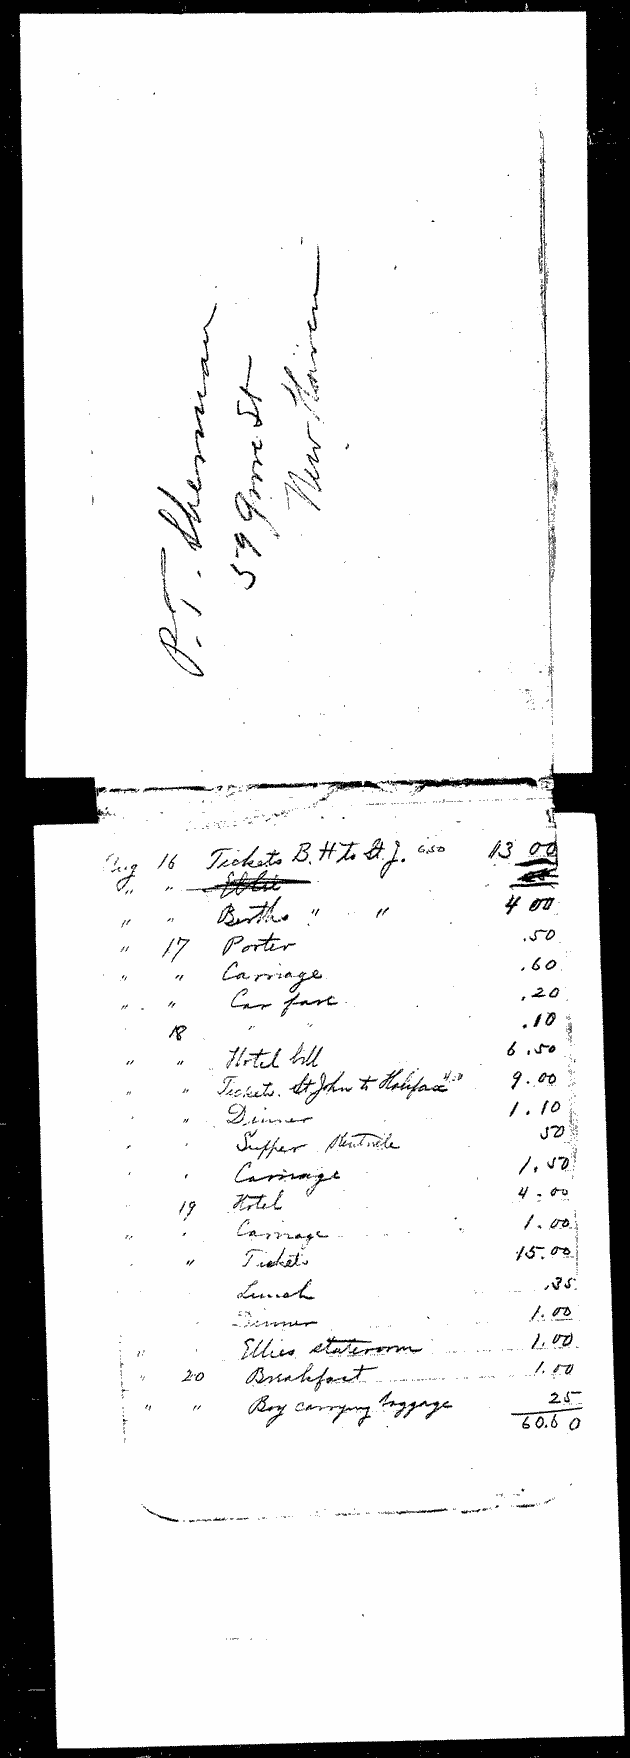 P.T. Sherman
59 Grove St
New Haven
Aug 16 Tickets B. H to St. J. 6.50 13 00
" " Ellie
" " Berths " " 4 00
" 17 Porter .50
" " Carriage .60
" " Car fare .20
18 " " .10
" " Hotel bill 6.50
" " Tickets. St John to Halifax 4.50 9.00
" " Dinner 1.10
" " Supper 50
" " Carriage 1.50
19 Hotel 4.00
" " Carriage 1.00
" Tickets 15.00
Lunch .35
Dinner 1.00
" " Ellies stateroom 1.00
" 20 Breakfast 1.00
" " Boy carrying baggage 25
60.60